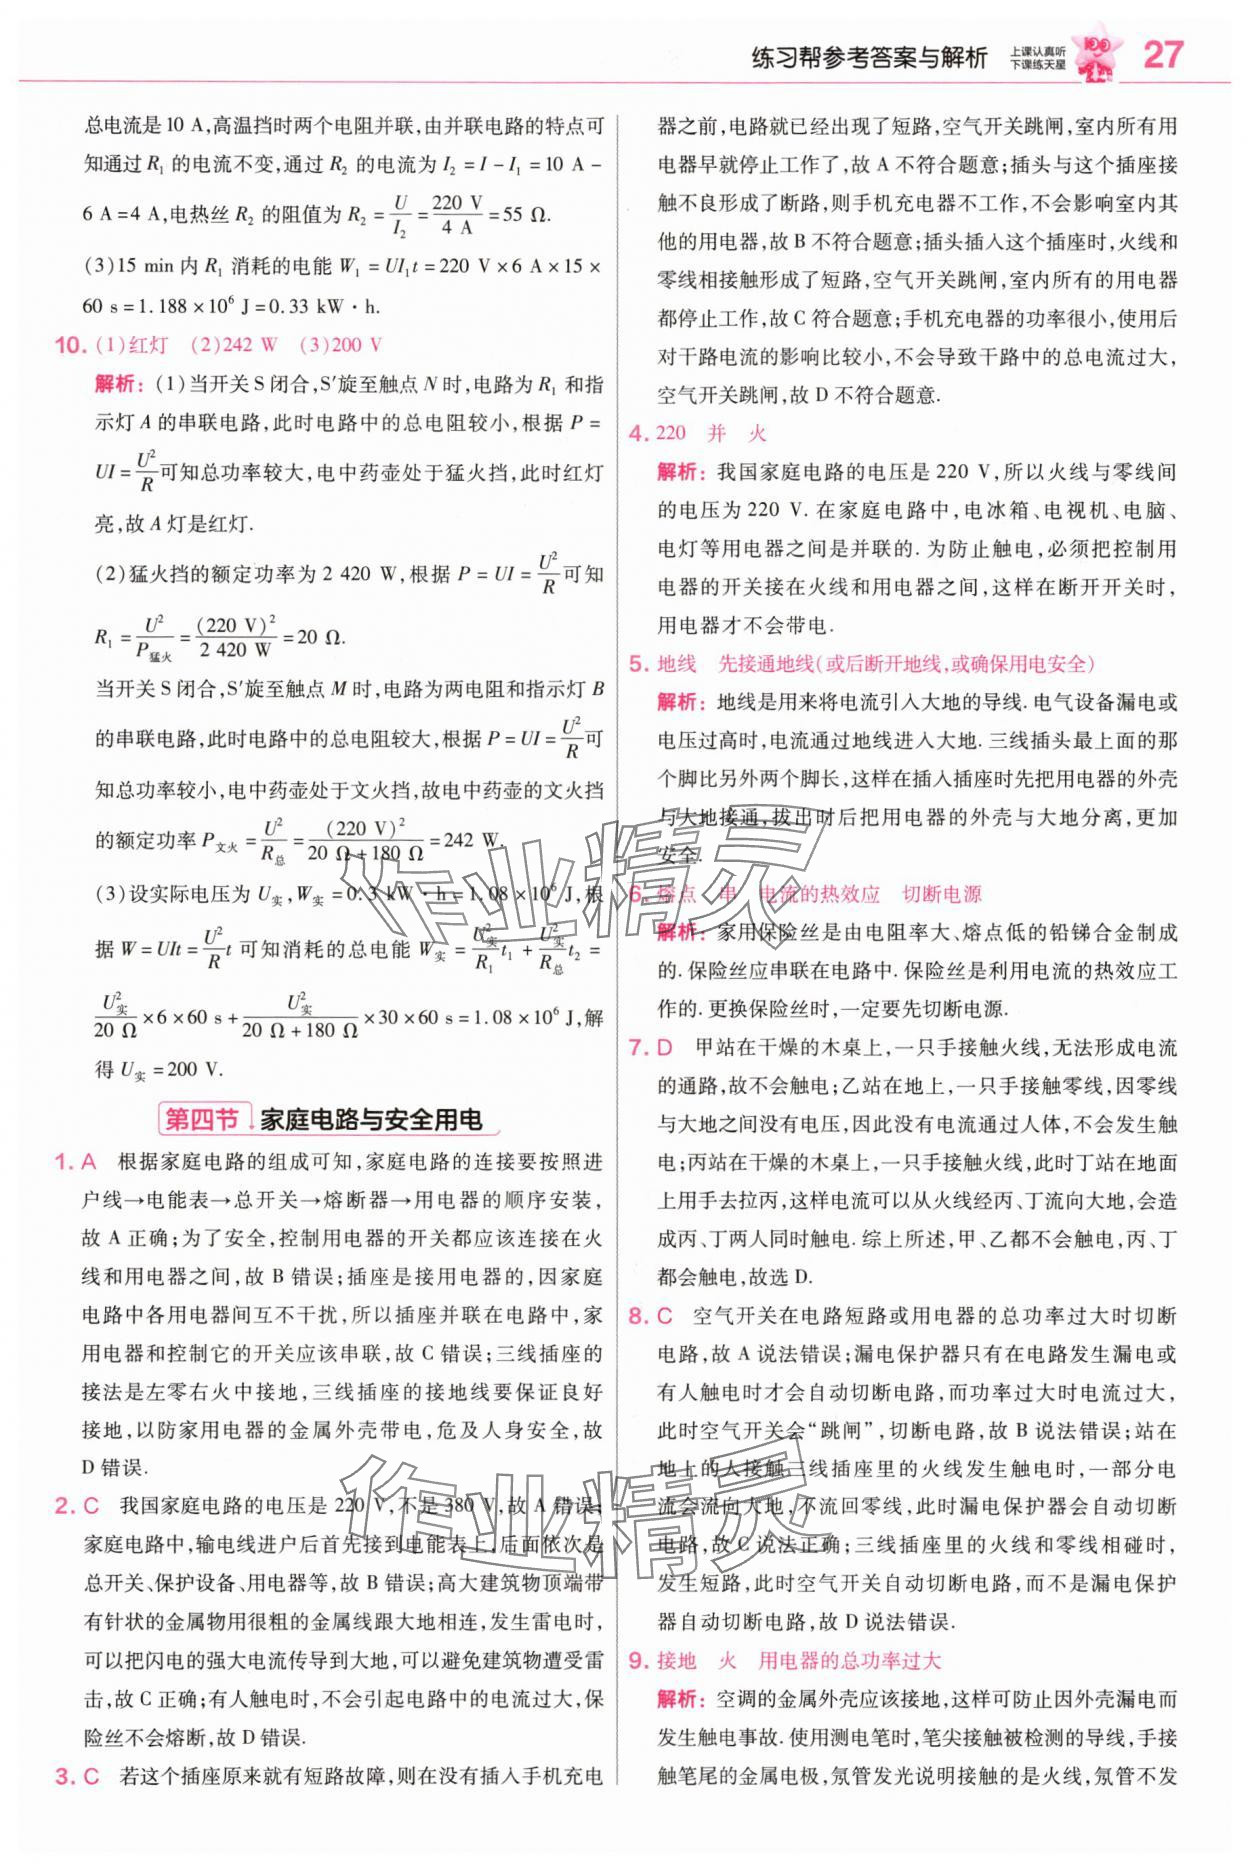 练习帮参考答案与解析 上课认真听 下课练天星 27
总电流是 10 A,高温挡时两个电阻并联,由并联电路的特点可
知通过 R₁ 的电流不变,通过 R₂ 的电流为 I₂ = I - I₁ = 10 A -
6 A = 4 A,电热丝 R₂ 的阻值为 R₂ = U/I₂ = 220 V/4 A = 55 Ω.
(3)15 min 内 R₁ 消耗的电能 W₁ = UI₁t = 220 V × 6 A × 15 ×
60 s = 1.188 × 10⁶ J = 0.33 kW·h.
10. (1)红灯 (2)242 W (3)200 V
解析:(1)当开关 S 闭合,S′旋至触点 N 时,电路为 R₁ 和指
示灯 A 的串联电路,此时电路中的总电阻较小,根据 P =
UI = U²/R 可知总功率较大,电中药壶处于猛火挡,此时红灯
亮,故 A 灯是红灯.
(2)猛火挡的额定功率为 2 420 W,根据 P = UI = U²/R 可知
R₁ = U²/P猛火 = (220 V)²/2 420 W = 20 Ω.
当开关 S 闭合,S′旋至触点 M 时,电路为两电阻和指示灯 B
的串联电路,此时电路中的总电阻较大,根据 P = UI = U²/R 可
知总功率较小,电中药壶处于文火挡,故电中药壶的文火挡
的额定功率 P文火 = U²/R总 = (220 V)²/(20 Ω + 180 Ω) = 242 W.
(3)设实际电压为 U实,W实 = 0.3 kW·h = 1.08 × 10⁶ J,根
据 W = UIt = U²/R t 可知消耗的总电能 W实 = U实²/R₁ t₁ + U实²/R总 t₂ =
U实²/20 Ω × 6 × 60 s + U实²/(20 Ω + 180 Ω) × 30 × 60 s = 1.08 × 10⁶ J,解
得 U实 = 200 V.
第四节 家庭电路与安全用电
1. A 根据家庭电路的组成可知,家庭电路的连接要按照进
户线→电能表→总开关→熔断器→用电器的顺序安装,
故 A 正确;为了安全,控制用电器的开关都应该连接在火
线和用电器之间,故 B 错误;插座是接用电器的,因家庭
电路中各用电器间互不干扰,所以插座并联在电路中,家
用电器和控制它的开关应该串联,故 C 错误;三线插座的
接法是左零右火中接地,三线插座的接地线要保证良好
接地,以防家用电器的金属外壳带电,危及人身安全,故
D 错误.
2. C 我国家庭电路的电压是 220 V,不是 380 V,故 A 错误;
家庭电路中,输电线进户后首先接到电能表上,后面依次是
总开关、保护设备、用电器等,故 B 错误;高大建筑物顶端带
有针状的金属物用很粗的金属线跟大地相连,发生雷电时,
可以把闪电的强大电流传导到大地,可以避免建筑物遭受雷
击,故 C 正确;有人触电时,不会引起电路中的电流过大,保
险丝不会熔断,故 D 错误.
3. C 若这个插座原来就有短路故障,则在没有插入手机充电
器之前,电路就已经出现了短路,空气开关跳闸,室内所有用
电器早就停止工作了,故 A 不符合题意;插头与这个插座接
触不良形成了断路,则手机充电器不工作,不会影响室内其
他的用电器,故 B 不符合题意;插头插入这个插座时,火线和
零线相接触形成了短路,空气开关跳闸,室内所有的用电器
都停止工作,故 C 符合题意;手机充电器的功率很小,使用后
对干路电流的影响比较小,不会导致干路中的总电流过大,
空气开关跳闸,故 D 不符合题意.
4. 220 并 火
解析:我国家庭电路的电压是 220 V,所以火线与零线间
的电压为 220 V. 在家庭电路中,电冰箱、电视机、电脑、
电灯等用电器之间是并联的. 为防止触电,必须把控制用
电器的开关接在火线和用电器之间,这样在断开开关时,
用电器才不会带电.
5. 地线 先接通地线(或后断开地线,或确保用电安全)
解析:地线是用来将电流引入大地的导线. 电气设备漏电或
电压过高时,电流通过地线进入大地. 三线插头最上面的那
个脚比另外两个脚长,这样在插入插座时先把用电器的外壳
与大地接通,拔出时后把用电器的外壳与大地分离,更加
安全.
6. 熔点 串 电流的热效应 切断电源
解析:家用保险丝是由电阻率大、熔点低的铅锑合金制成
的. 保险丝应串联在电路中. 保险丝是利用电流的热效应工
作的. 更换保险丝时,一定要先切断电源.
7. D 甲站在干燥的木桌上,一只手接触火线,无法形成电流
的通路,故不会触电;乙站在地上,一只手接触零线,因零线
与大地之间没有电压,因此没有电流通过人体,不会发生触
电;丙站在干燥的木桌上,一只手接触火线,此时丁站在地面
上用手去拉丙,这样电流可以从火线经丙、丁流向大地,会造
成丙、丁两人同时触电. 综上所述,甲、乙都不会触电,丙、丁
都会触电,故选 D.
8. C 空气开关在电路短路或用电器的总功率过大时切断
电路,故 A 说法错误;漏电保护器只有在电路发生漏电或
有人触电时才会自动切断电路,而功率过大时电流过大,
此时空气开关会“跳闸”,切断电路,故 B 说法错误;站在
地上的人接触三线插座里的火线发生触电时,一部分电
流会流向大地,不流回零线,此时漏电保护器会自动切断
电路,故 C 说法正确;三线插座里的火线和零线相碰时,
发生短路,此时空气开关自动切断电路,而不是漏电保护
器自动切断电路,故 D 说法错误.
9. 接地 火 用电器的总功率过大
解析:空调的金属外壳应该接地,这样可防止因外壳漏电而
发生触电事故. 使用测电笔时,笔尖接触被检测的导线,手接
触笔尾的金属电极,氖管发光说明接触的是火线,氖管不发
作业精灵
作业精灵